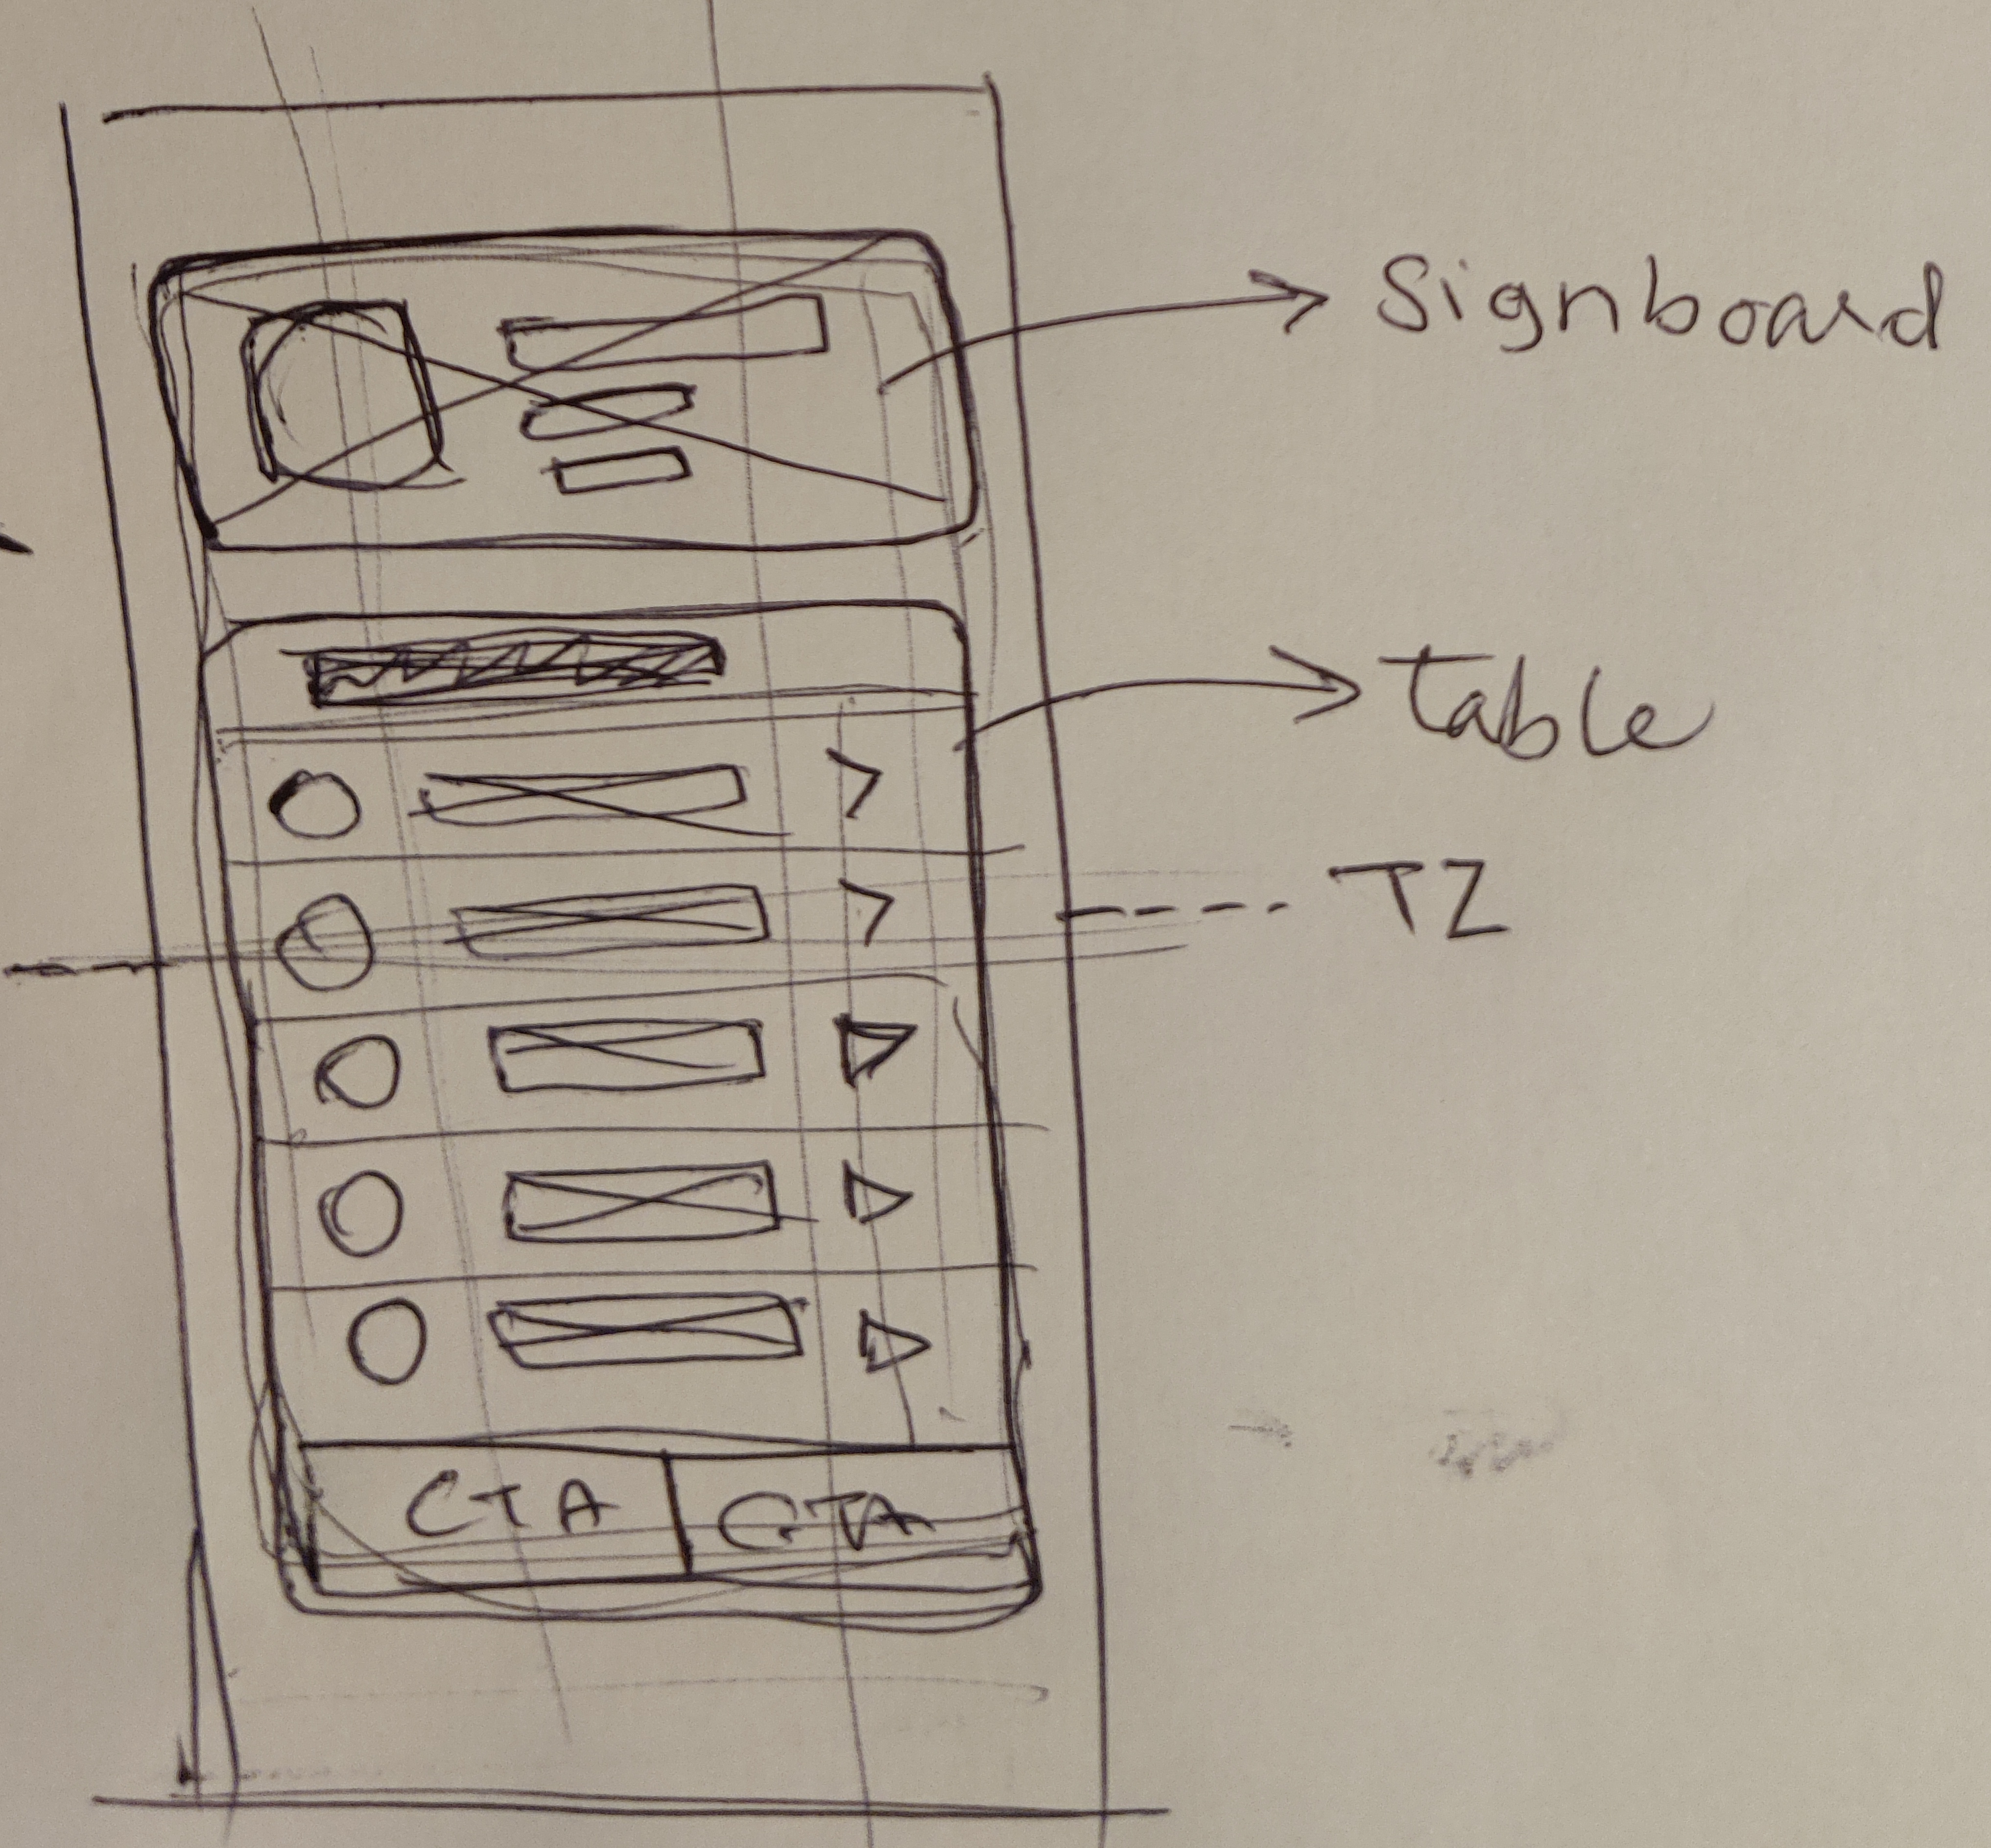 Signboard
Table
TZ
CTA CTA